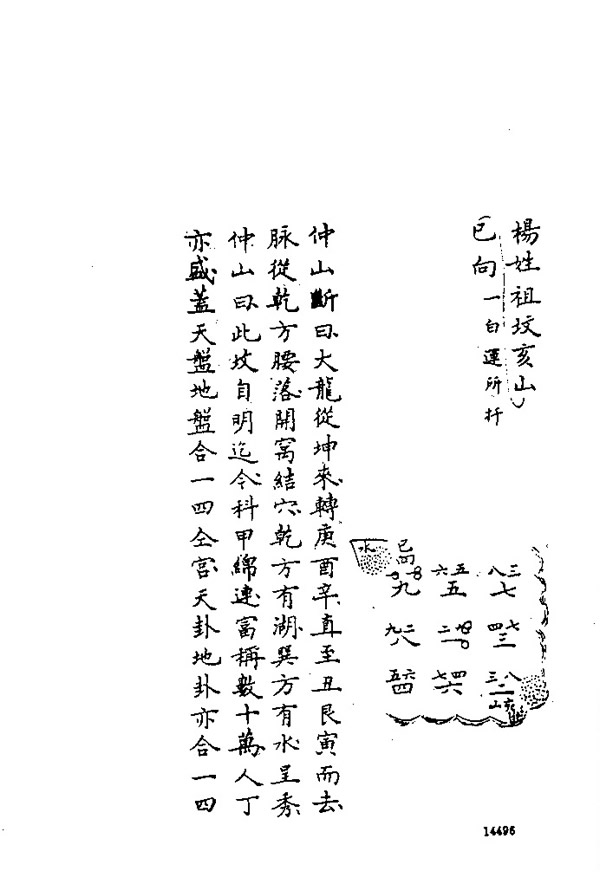 楊姓祖坟亥山
巳向 一白運所扦
水 巳向
六五 八三
九 五 七
九二 四七
八 一 三
五六 七四 三八
四 六 二
亥山
仲山斷曰大龍從坤來轉庚酉辛直至丑艮寅而去
脉從乾方腰落開窩結穴乾方有湖巽方有水呈秀
仲山曰此坟自明迄今科甲綿連富稱數十萬人丁
亦盛蓋天盤地盤合一四仝宫天卦地卦亦合一四
14496